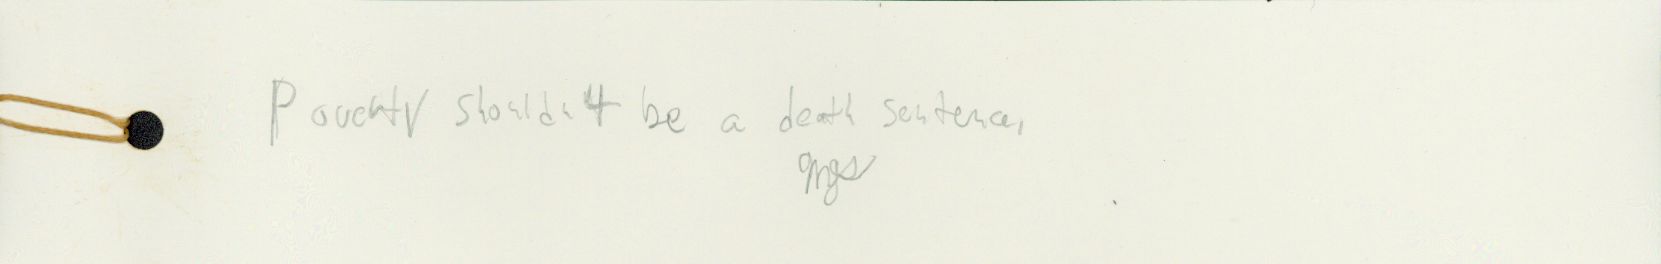 Poverty shouldn't be a death sentence.